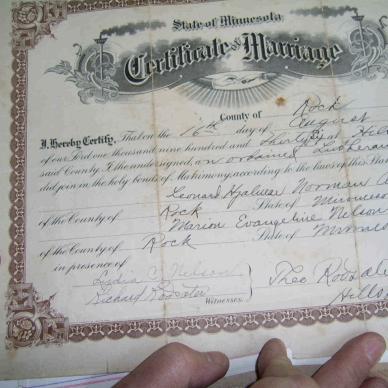 State of Minnesota
Certificate of Marriage
County of Rock
I Hereby Certify, That on the 16th day of August
of our Lord one thousand nine hundred and at Hills
said County I the undersigned, an ordained Lutheran
did join in the holy bonds of Matrimony according to the laws of this State
Leonard Norman
of the County of Rock State of Minnesota
Marion Evangeline Nelson
of the County of Rock State of
in presence of
Lydia C. Nelson
Richard Witnesses. Theo
Hills